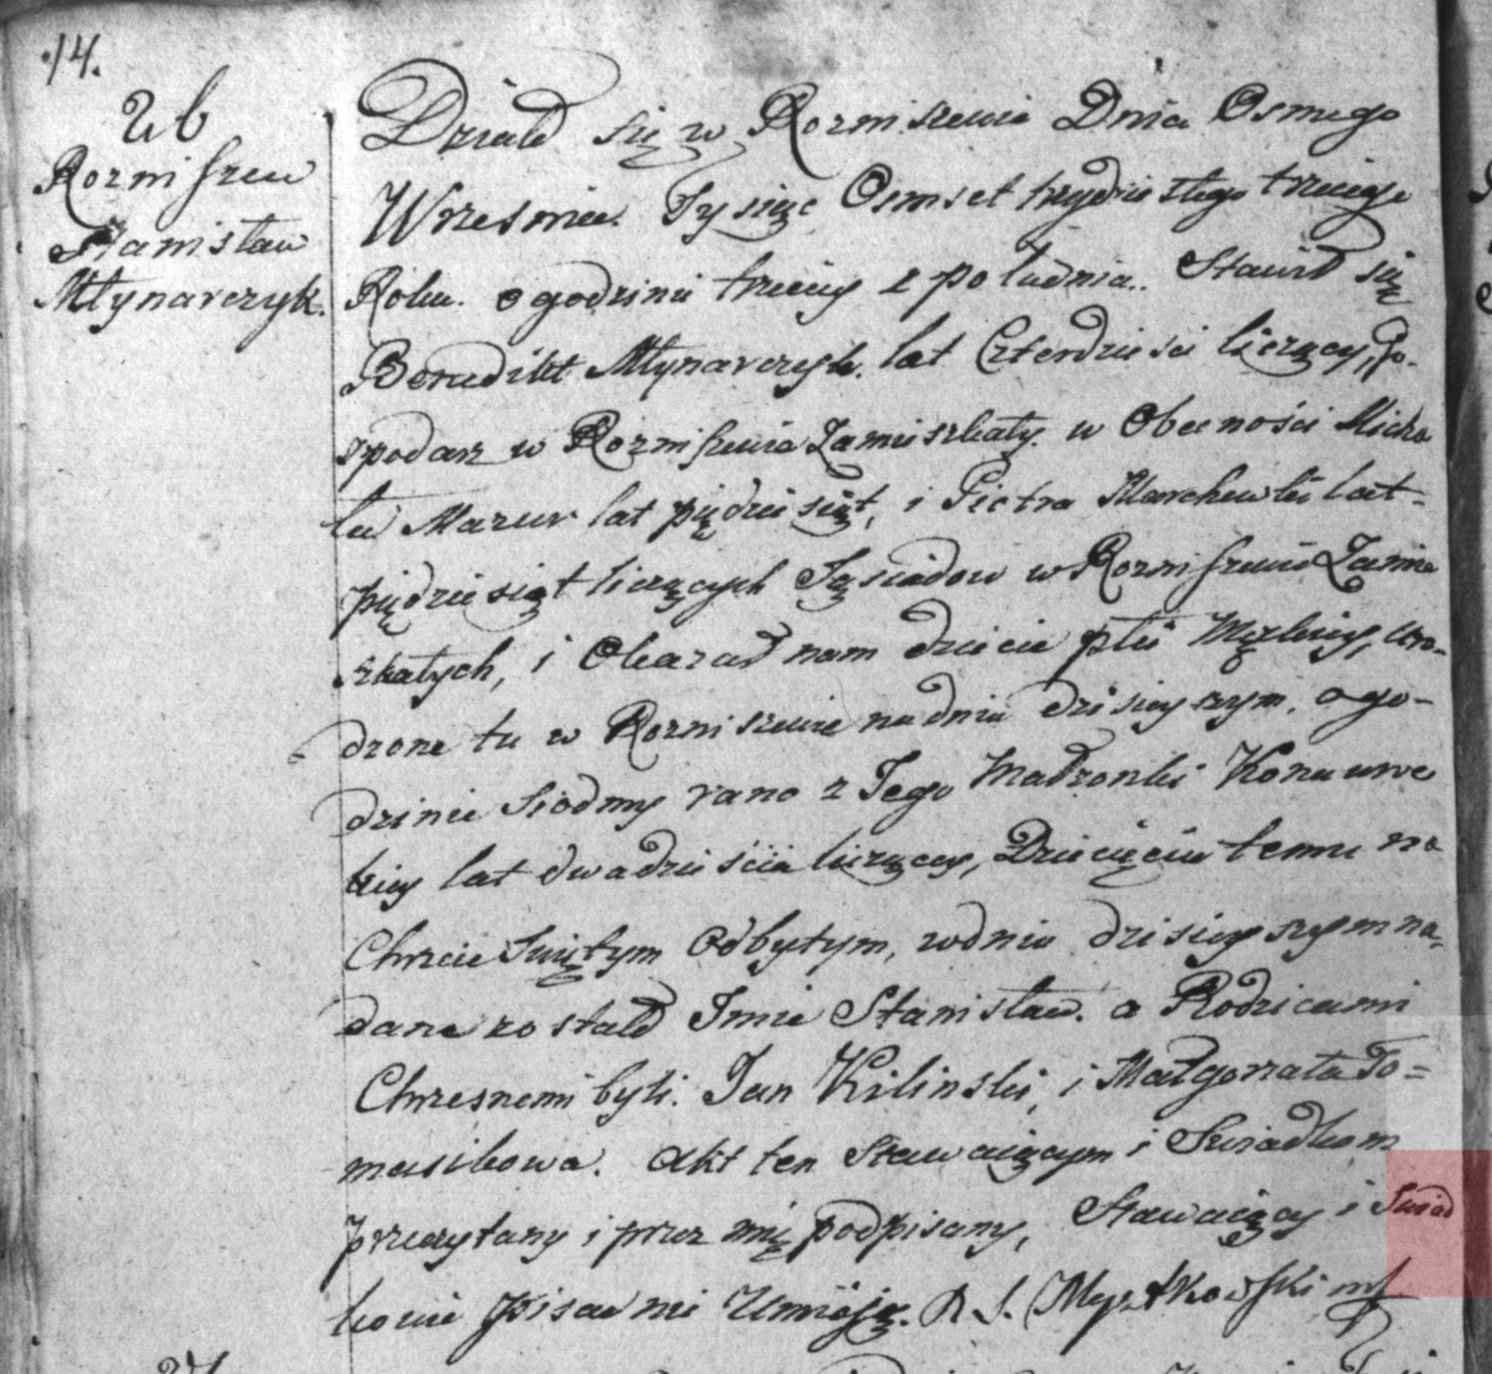 14.
26
Rozniszew
Stanisław
Młynarczyk.
Działo się w Rozniszewie Dnia Osmego
Wrzesnia. Tysiąc Osmset trzydziestego trzeciego
Roku. o godzinie trzeciey z południa.. Stawił się
Benedikt Młynarczyk. lat Czterdziesci liczący, Go-
spodarz w Rozniszewie Zamieszkały. w Obecności Micha
ła Mazur lat piędziesiąt, i Piotra Marchewki lat-
pięдziesiąt liczących Sąsiadow w Rozniszewie Zamie
szkałych, i Okazał nam dziecie płci Męzkiey, uro-
dzone tu w Rozniszewie na dniu dzisieyszym. o go-
dzinie Siodmy rano z Jego Małzonki
kiey lat dwadzieścia liczącey, Dziecięciu temu na
Chrzcie Swiętym Odbytym, w dniu dzisieyszym na=
dane zostało Imie Stanisław. a Rodzicami
Chrzesnemi byli. Jan Kilinski, i Małgorzata To=
masikowa. Akt ten Stawaiącym i Swiadkom
przeczytany i przez mię podpisany, Stawaiący i Swiad
kowie pisać nie Umieją. X J. Myszkowski mp
27